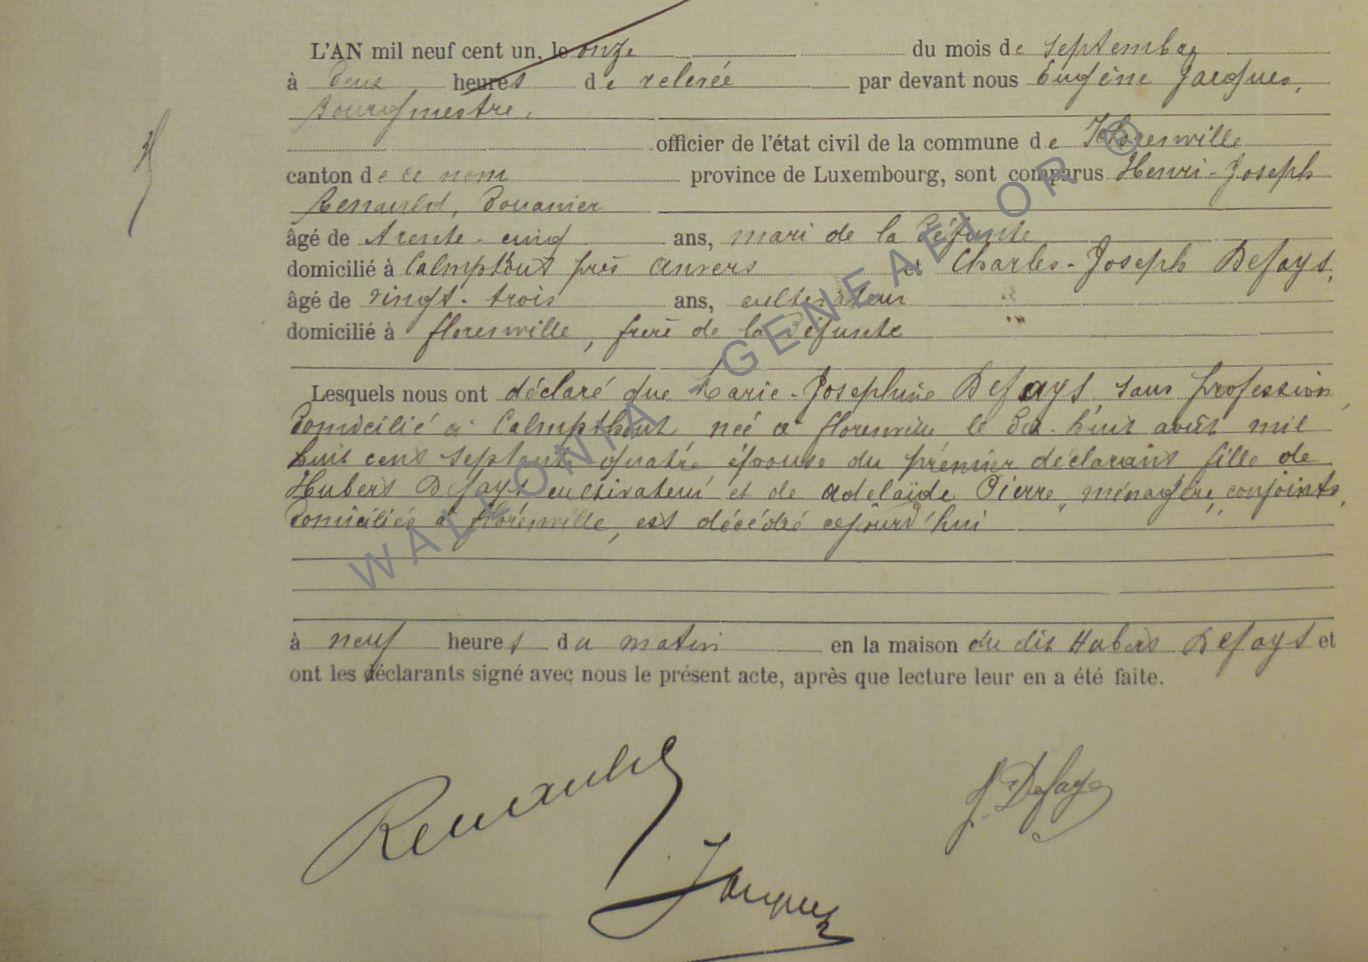 L'AN mil neuf cent un, le onze du mois de septembre
à deux heures de relevée par devant nous Eugène Jacques,
Bourgmestre,
officier de l'état civil de la commune de Florenville
canton de ce nom province de Luxembourg, sont comparus Henri-Joseph
Renauld, Douanier
âgé de trente-cinq ans, mari de la défunte
domicilié à Calmpthout près Anvers et Charles-Joseph Defays,
âgé de vingt-trois ans, cultivateur
domicilié à florenville, frère de la défunte
Lesquels nous ont déclaré que Marie-Joséphine Defays sans profession,
domicilié à Calmpthout née à florenville le dix-huit août mil
huit cent septante quatre épouse du prémier déclarant fille de
Hubert Defays cultivateur et de adelaïde Pierre, ménagère, conjoints,
domiciliés à florenville, est décédée cejourd'hui
à neuf heures du matin en la maison du dit Hubert Defays et
ont les déclarants signé avec nous le présent acte, après que lecture leur en a été faite.
Renauld
J. Defays
Jacques
WALLONIA - GENEALOR ®